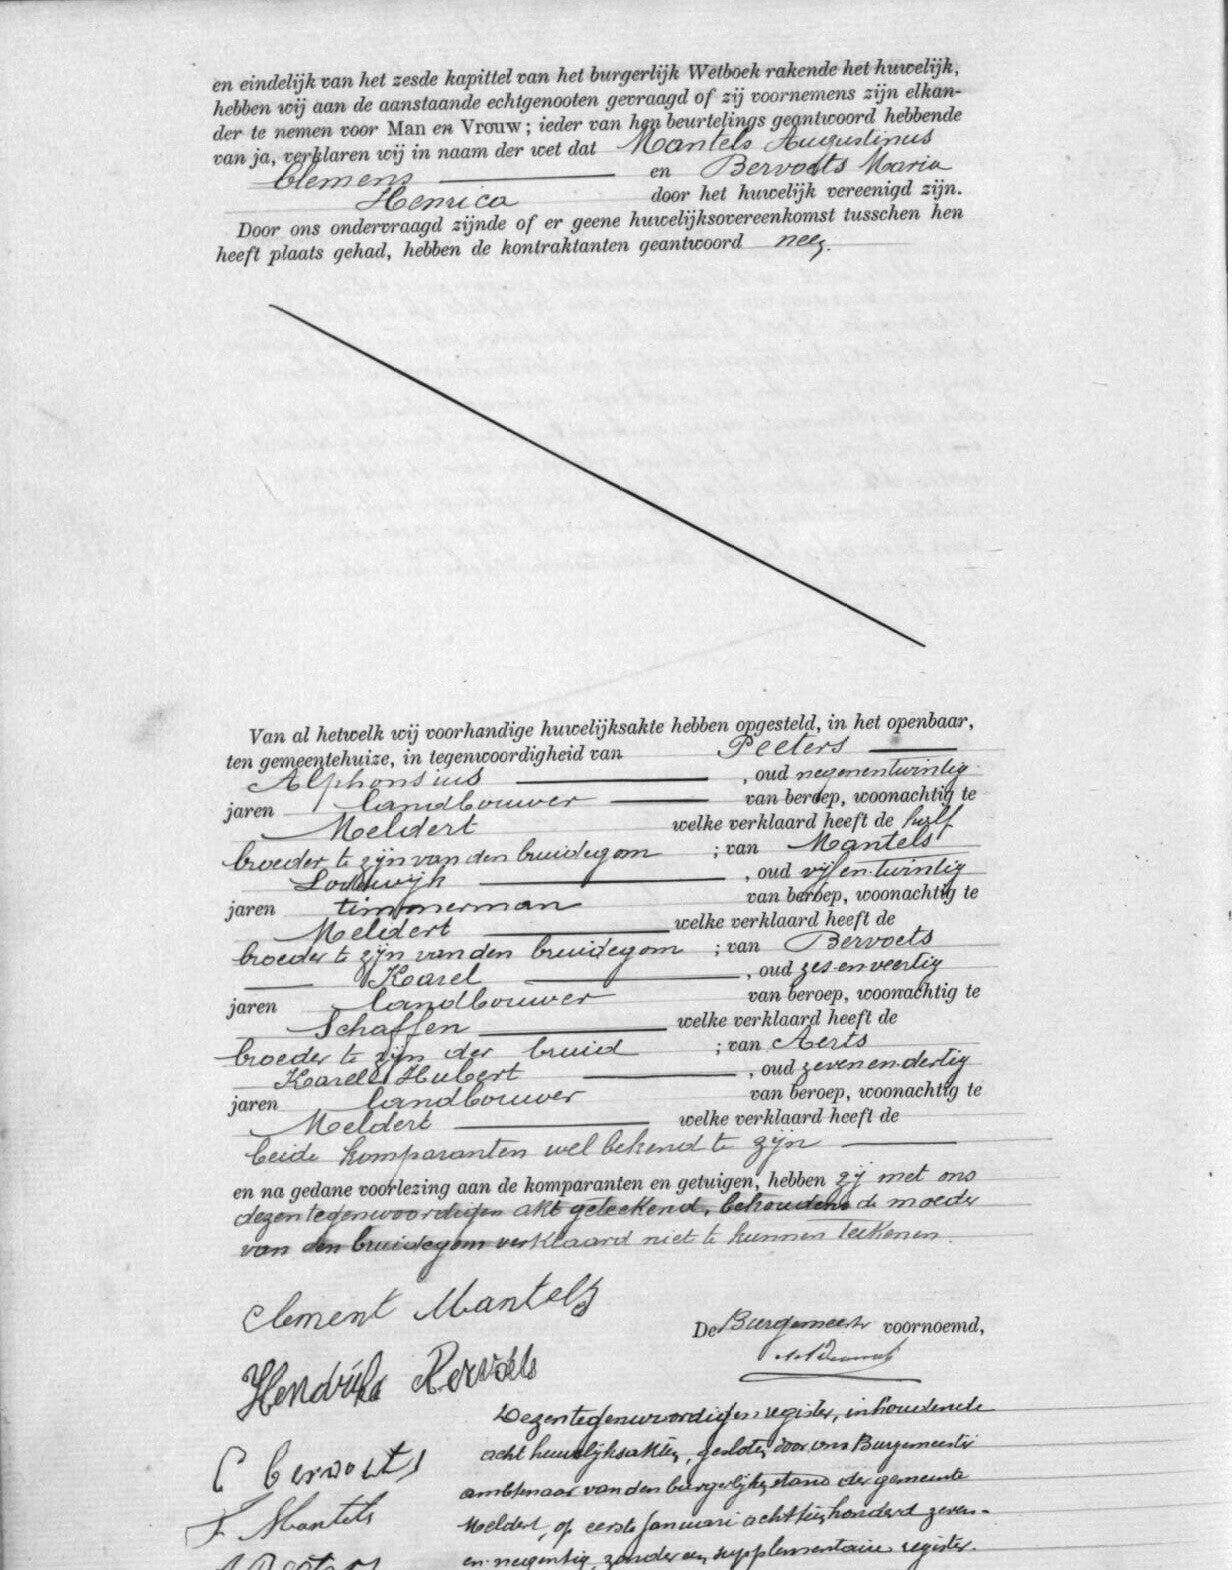 en eindelijk van het zesde kapittel van het burgerlijk Wetboek rakende het huwelijk,
hebben wij aan de aanstaande echtgenooten gevraagd of zij voornemens zijn elkan-
der te nemen voor Man en Vrouw; ieder van hen beurtelings geantwoord hebbende
van ja, verklaren wij in naam der wet dat Mantels Augustinus
Clemens en Bervoets Maria
Henrica door het huwelijk vereenigd zijn.
Door ons ondervraagd zijnde of er geene huwelijksovereenkomst tusschen hen
heeft plaats gehad, hebben de kontraktanten geantwoord neen.
Van al hetwelk wij voorhandige huwelijksakte hebben opgesteld, in het openbaar,
ten gemeentehuize, in tegenwoordigheid van Peeters
Alphonsius , oud negenentwintig
jaren landbouwer van beroep, woonachtig te
Meldert welke verklaard heeft de half
broeder te zijn van den bruidegom ; van Mantels
Lodewijk , oud vijfentwintig
jaren timmerman van beroep, woonachtig te
Meldert welke verklaard heeft de
broeder te zijn van den bruidegom ; van Bervoets
Karel , oud zes en veertig
jaren landbouwer van beroep, woonachtig te
Schaffen welke verklaard heeft de
broeder te zijn der bruid ; van Aerts
Karel Hubert , oud zeven en dertig
jaren landbouwer van beroep, woonachtig te
Meldert welke verklaard heeft de
beide komparanten wel bekend te zijn
en na gedane voorlezing aan de komparanten en getuigen, hebben zij met ons
dezen tegenwoordigen akt geteekend, behoudens de moeder
van den bruidegom verklaard niet te kunnen teekenen.
Clement Mantels
De Burgemeester voornoemd,
Hendrika Bervoets
Dezen tegenwoordigen register, inhoudende
acht huwelijksakten, gesloten door ons Burgemeester
C bervoets
ambtenaar van den burgerlijken stand der gemeente
F. Mantels
Meldert, op eerste Januari achttienhonderd zeven-
en-negentig, zonder een supplementaire register.
A Peeters